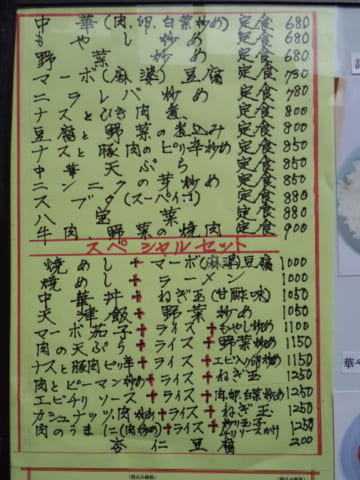 中華(肉、卵、白菜炒め) 定食 680
もやし炒め 定食 680
野菜炒め 定食 680
マーボ(麻婆)豆腐 定食 730
ニラレバ炒め 定食 780
ナスとひき肉煮 定食 800
豆腐と野菜の煮込み 定食 800
ナスと豚肉のピリ辛炒め 定食 850
中華天ぷら 定食 850
ニンニクの芽炒め 定食 850
スブタ(スーペイゴ) 定食 880
八宝菜 定食 880
牛肉、野菜の焼肉 定食 900
スペシャルセット
焼めし+マーボ(麻婆)豆腐 1000
焼めし+ラーメン 1000
中華丼+ねぎ玉(甘酢味) 1050
天津飯+野菜炒め 1050
マーボ茄子+ライス+もやし炒め 1100
肉の天ぷら+ライス+野菜炒め 1150
ナスと豚肉ピリ辛+ライス+エビ入り卵炒め 1150
肉とピーマン炒め+ライス+ねぎ玉 1250
エビチリソース+ライス+肉、卵、白菜炒め 1250
カシュナッツ肉炒め+ライス+ねぎ玉 1250
肉のうまに(肉炒め)+ライス+ 1250
杏仁豆腐 200